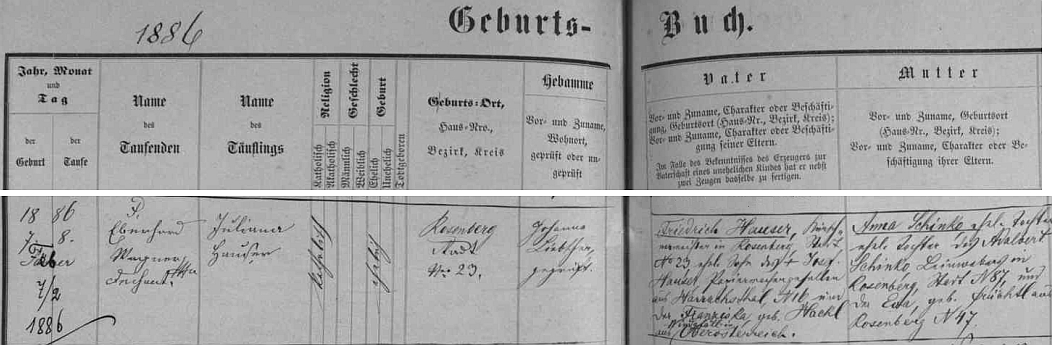 1886
Geburts-
Buch.
Jahr, Monat
und
Tag
der
Geburt
der
Taufe
Name
des
Taufenden
Name
des
Täuflings
Religion
Katholisch
Akatholisch
Geschlecht
Männlich
Weiblich
Geburt
Ehelich
Unehelich
Todtgeboren
Geburts-Ort,
Haus-Nro.,
Bezirk, Kreis
Hebamme
Vor- und Zuname,
Wohnort,
geprüft oder un-
geprüft
Vater
Vor- und Zuname, Charakter oder Beschäfti-
gung, Geburtsort (Haus-Nr., Bezirk, Kreis);
Vor- und Zuname, Charakter oder Beschäfti-
gung seiner Eltern.
Im Falle des Bekenntnisses des Erzeugers zur
Vaterschaft eines unehelichen Kindes hat er nebst
zwei Zeugen dasselbe zu fertigen.
Mutter
Vor- und Zuname, Geburtsort
(Haus-Nr., Bezirk, Kreis);
Vor- und Zuname, Charakter oder Be-
schäftigung ihrer Eltern.
18 86
7. 8.
7/2
1886
P.
Eberhard
Wagner
Dechant
Juliana
Hauser
katholisch
ehelich
Rosenberg
Stadt
Nr. 23.
Johanna
geprüft.
Friedrich Hauser,
in Rosenberg Stadt
No 23 ehel. Sohn des Josef
Hauser
aus Harrachsthal N 16 und
der Franziska geb. Hackl
aus Oberösterreich.
Anna Schinko ehel. Tochter
ehel. Tochter des Adalbert
Schinko Leinweber in
Rosenberg, Stadt N 87, und
der Eva, geb. Früchtl aus
Rosenberg N 47.